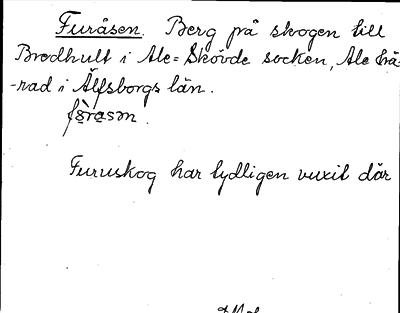 Furåsen. Berg på skogen till
Brodhult i Ale=Skövde socken, Ale hä-
-rad i Älfsborgs län.
Furuskog har tydligen vuxit där